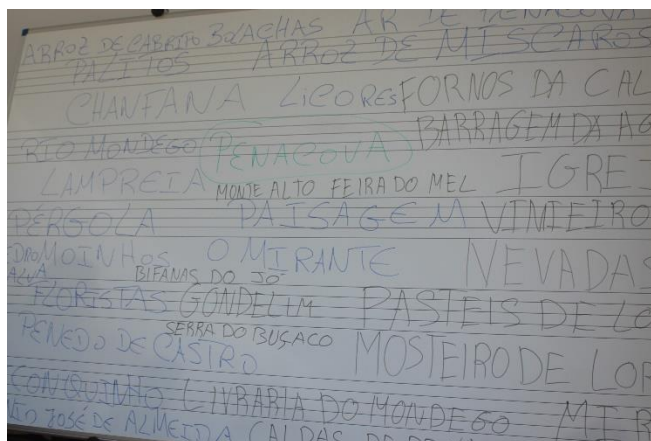 ARROZ DE CABRITO BOLACHAS AR DE PENACOVA
PALITOS ARROZ DE MISCAROS
CHANFANA LICORES FORNOS DA CAL
RIO MONDEGO PENACOVA BARRAGEM DA AG
LAMPREIA MONTE ALTO FEIRA DO MEL IGRE
PÉRGOLA PAISAGEM VIMIEIRO
MOINHOS O MIRANTE NEVADAS
ALVA BIFANAS DO JÓ
FLORISTAS GONDELIM PASTEIS DE LO
PENEDO DE CASTRO SERRA DO BUSACO MOSTEIRO DE LOR
CONQUINHO LIVRARIA DO MONDEGO MIR
JOSÉ DE ALMEIDA CALDAS